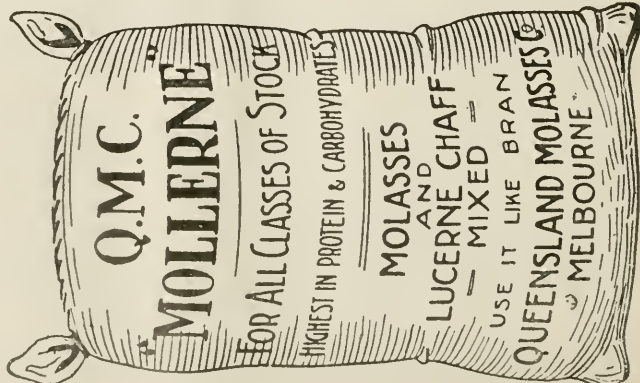 Q.M.C.
"MOLLERNE"
FOR ALL CLASSES OF STOCK
HIGHEST IN PROTEIN & CARBOHYDRATES
MOLASSES
AND
LUCERNE CHAFF
— MIXED —
USE IT LIKE BRAN
QUEENSLAND MOLASSES Co
MELBOURNE